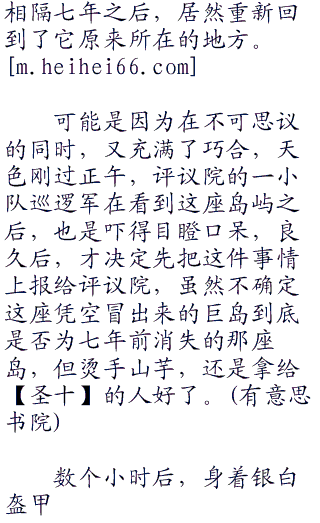 相隔七年之后，居然重新回
到了它原来所在的地方。
[m.heihei66.com]
可能是因为在不可思议
的同时，又充满了巧合，天
色刚过正午，评议院的一小
队巡逻军在看到这座岛屿之
后，也是吓得目瞪口呆，良
久后，才决定先把这件事情
上报给评议院，虽然不确定
这座凭空冒出来的巨岛到底
是否为七年前消失的那座
岛，但烫手山芋，还是拿给
【圣十】的人好了。(有意思
书院)
数个小时后，身着银白
盔甲